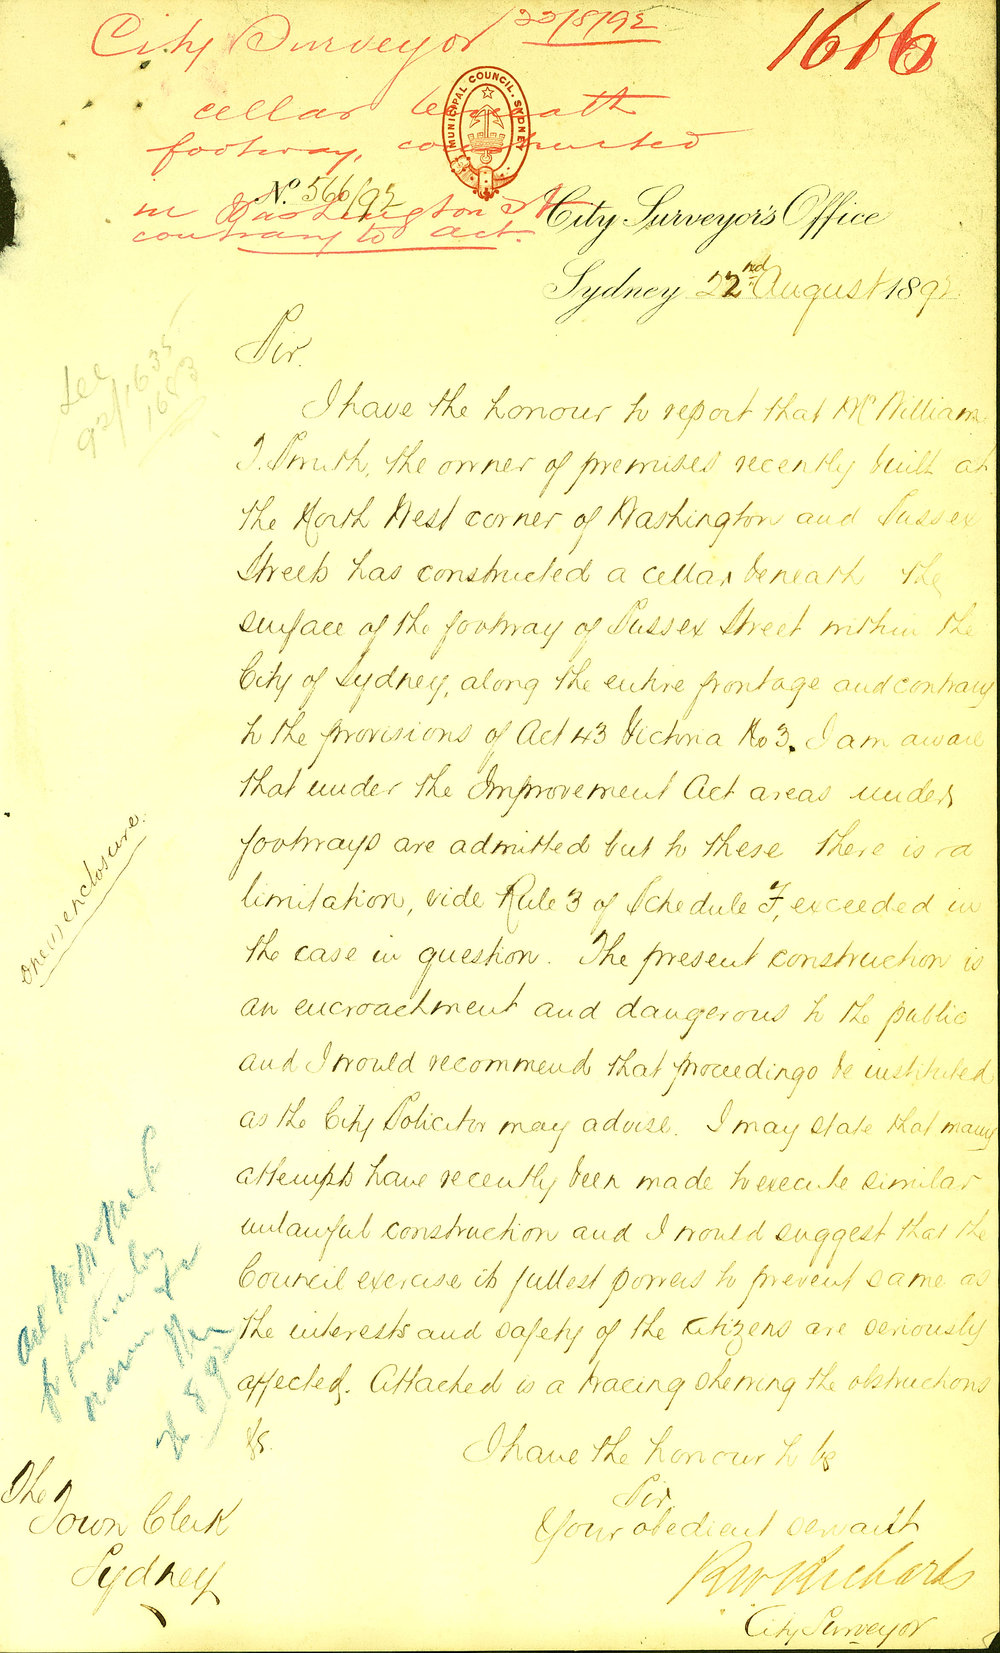 City Surveyor 22/8/92
1616
cellar beneath
footway, constructed
in Washington St
contrary to Act.
MUNICIPAL COUNCIL. SYDNEY
No. 566/92
City Surveyor's Office
Sydney 22nd August 1892
See
92/1635
1683
Sir.
I have the honour to report that Mr William
J. Smith, the owner of premises recently built at
the North West corner of Washington and Sussex
Streets has constructed a cellar beneath the
surface of the footway of Sussex Street within the
City of Sydney, along the entire frontage and contrary
to the provisions of Act 43 Victoria No 3. I am aware
that under the Improvement Act areas under
footways are admitted but to these there is a
limitation, vide Rule 3 of Schedule F, exceeded in
the case in question. The present construction is
an encroachment and dangerous to the public
and I would recommend that proceedings be instituted
as the City Solicitor may advise. I may state that many
attempts have recently been made to execute similar
unlawful construction and I would suggest that the
Council exercise its fullest powers to prevent same as
the interests and safety of the citizens are seriously
affected. Attached is a tracing shewing the obstructions
&c.
one enclosure.
I have the honour to be
Sir,
Your obedient servant
R W Richards
City Surveyor
The
Town Clerk
Sydney